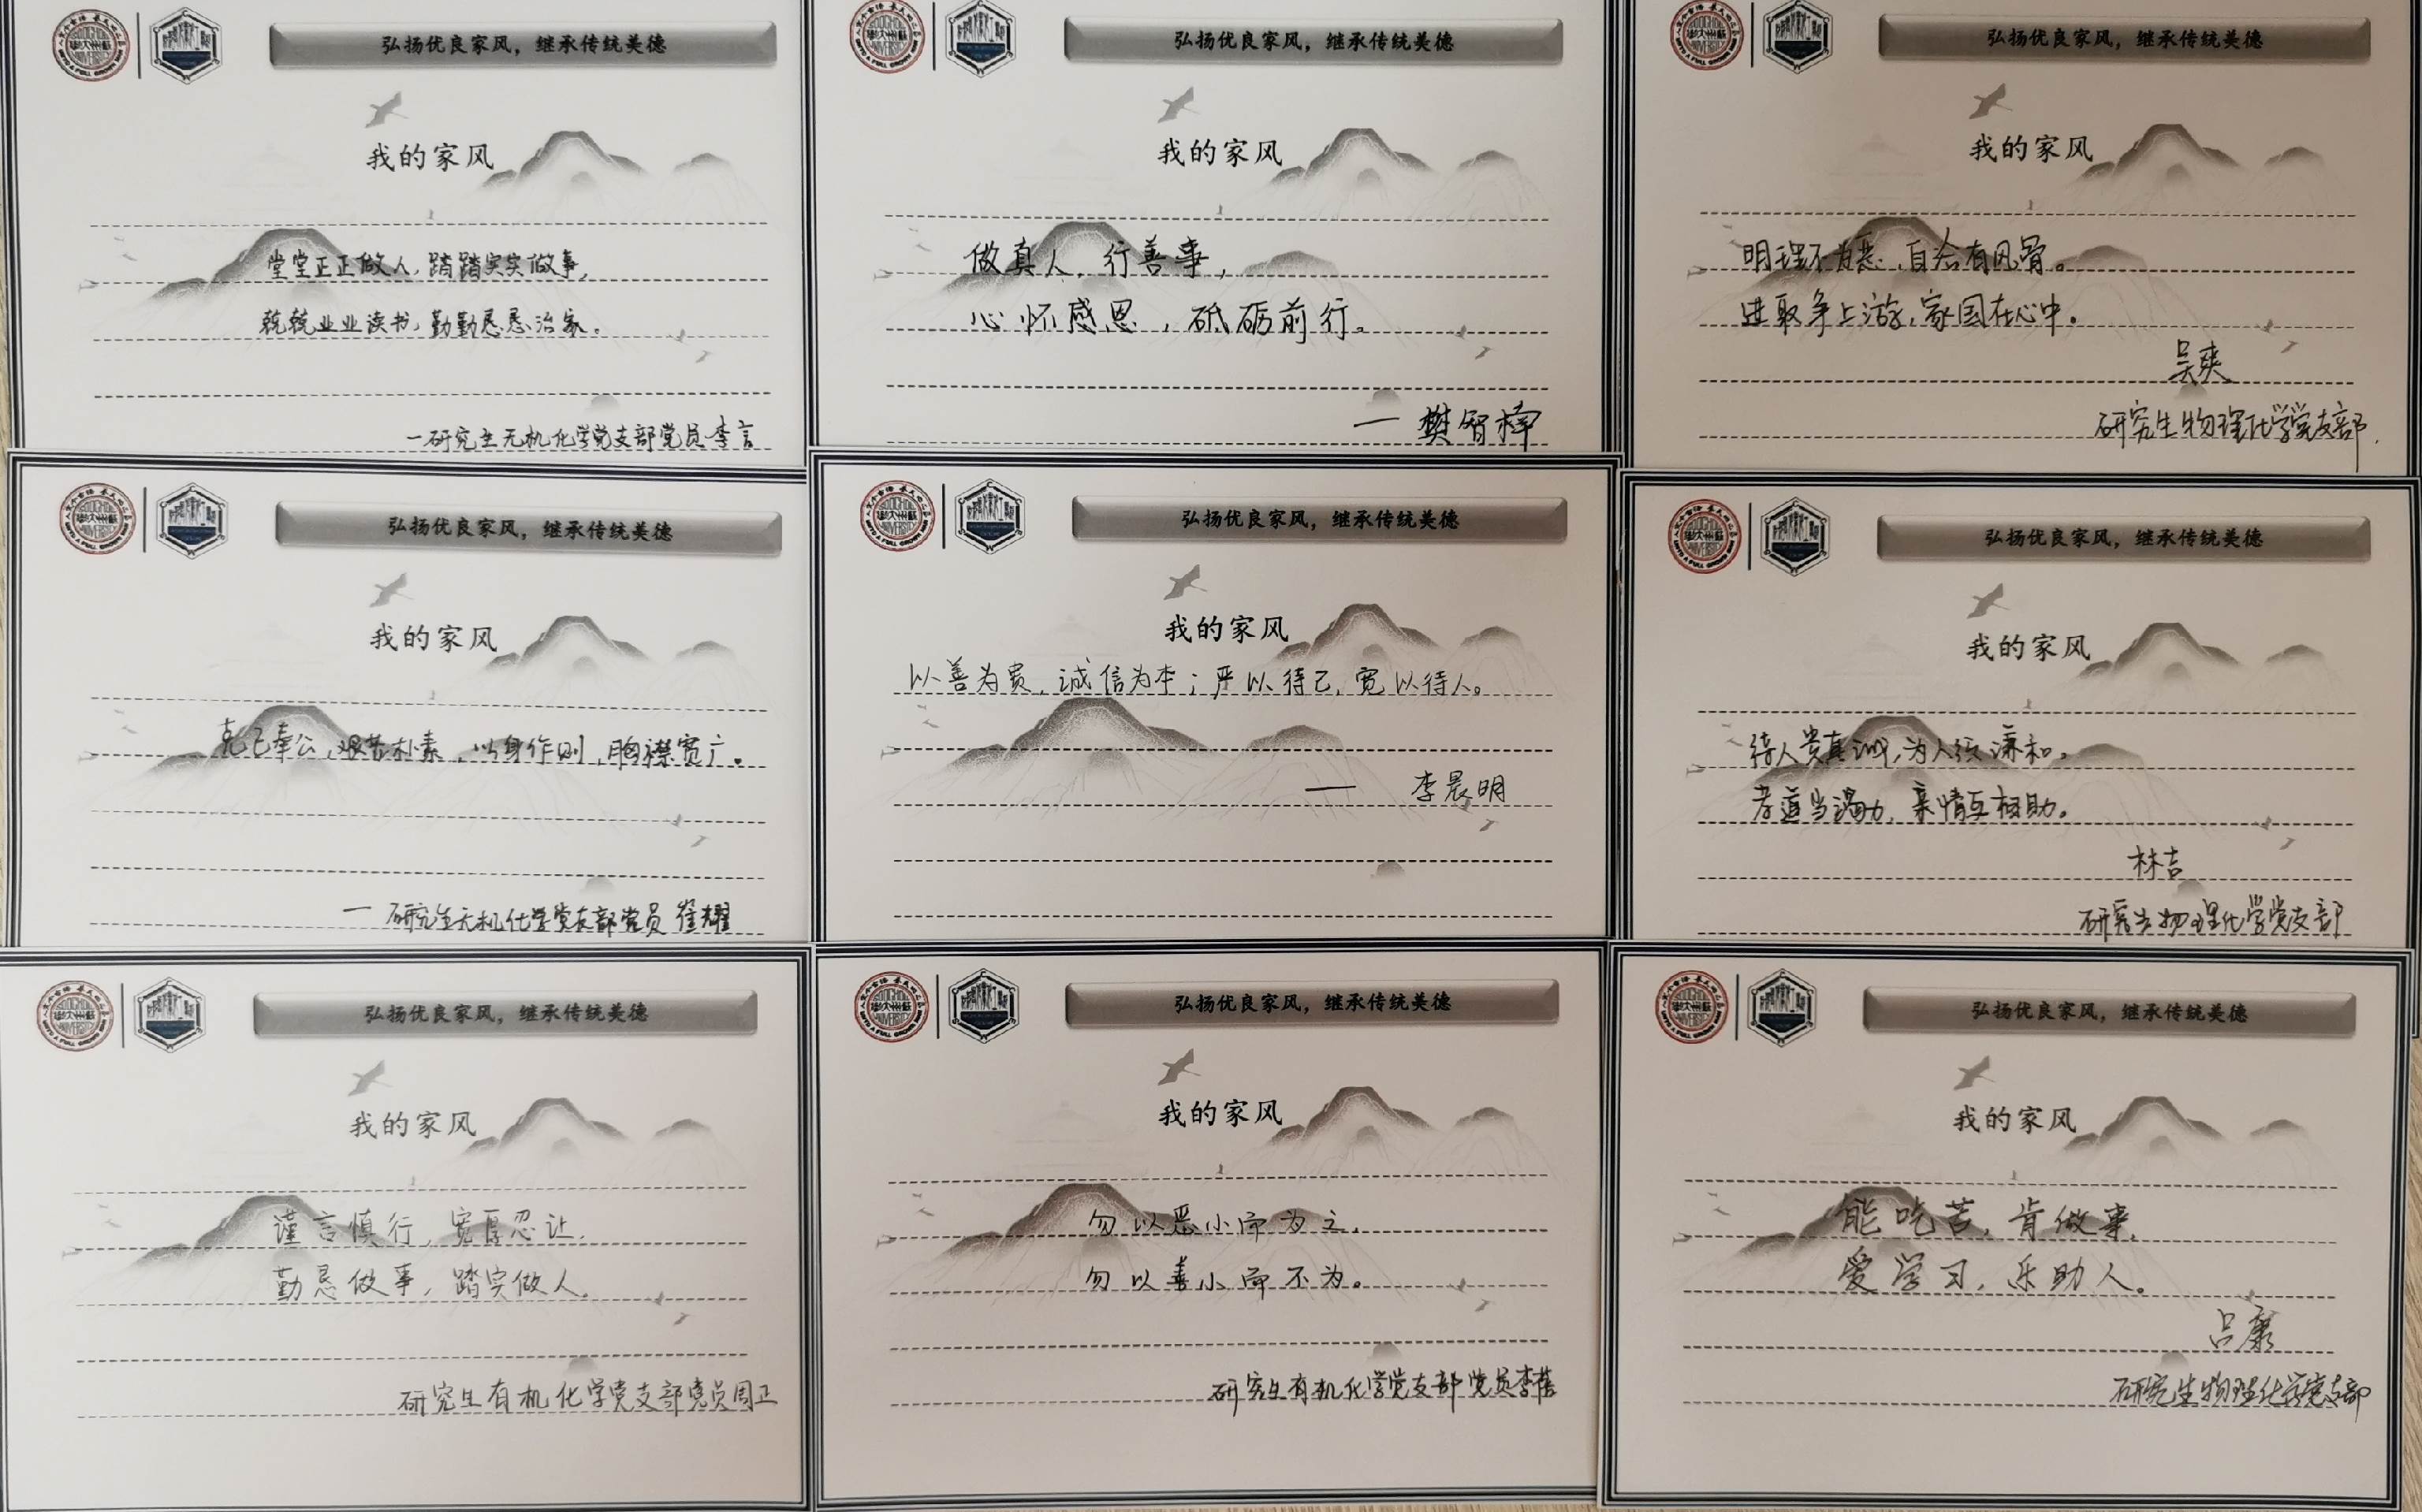 弘扬优良家风，继承传统美德
我的家风
堂堂正正做人，踏踏实实做事，
兢兢业业读书，勤勤恳恳治家。
—研究生无机化学党支部党员李言
弘扬优良家风，继承传统美德
我的家风
做真人，行善事，
心怀感恩，砥砺前行。
—樊智梓
弘扬优良家风，继承传统美德
我的家风
明理不为恶，自然有风骨。
进取争上游，家国在心中。
吴爽
研究生物理化学党支部.
弘扬优良家风，继承传统美德
我的家风
克己奉公，艰苦朴素，以身作则，胸襟宽广。
—研究生无机化学党支部党员 崔耀
弘扬优良家风，继承传统美德
我的家风
以善为贵，诚信为本；严以待己，宽以待人。
— 李晨明
弘扬优良家风，继承传统美德
我的家风
待人贵真诚，为人须谦和，
孝道当竭力，亲情互相助。
林吉
研究生物理化学党支部
弘扬优良家风，继承传统美德
我的家风
谨言慎行，宽厚忍让，
勤恳做事，踏实做人。
研究生有机化学党支部党员周正
弘扬优良家风，继承传统美德
我的家风
勿以恶小而为之，
勿以善小而不为。
研究生有机化学党支部党员李
弘扬优良家风，继承传统美德
我的家风
能吃苦，肯做事，
爱学习，乐助人。
吕康
研究生物理化学党支部